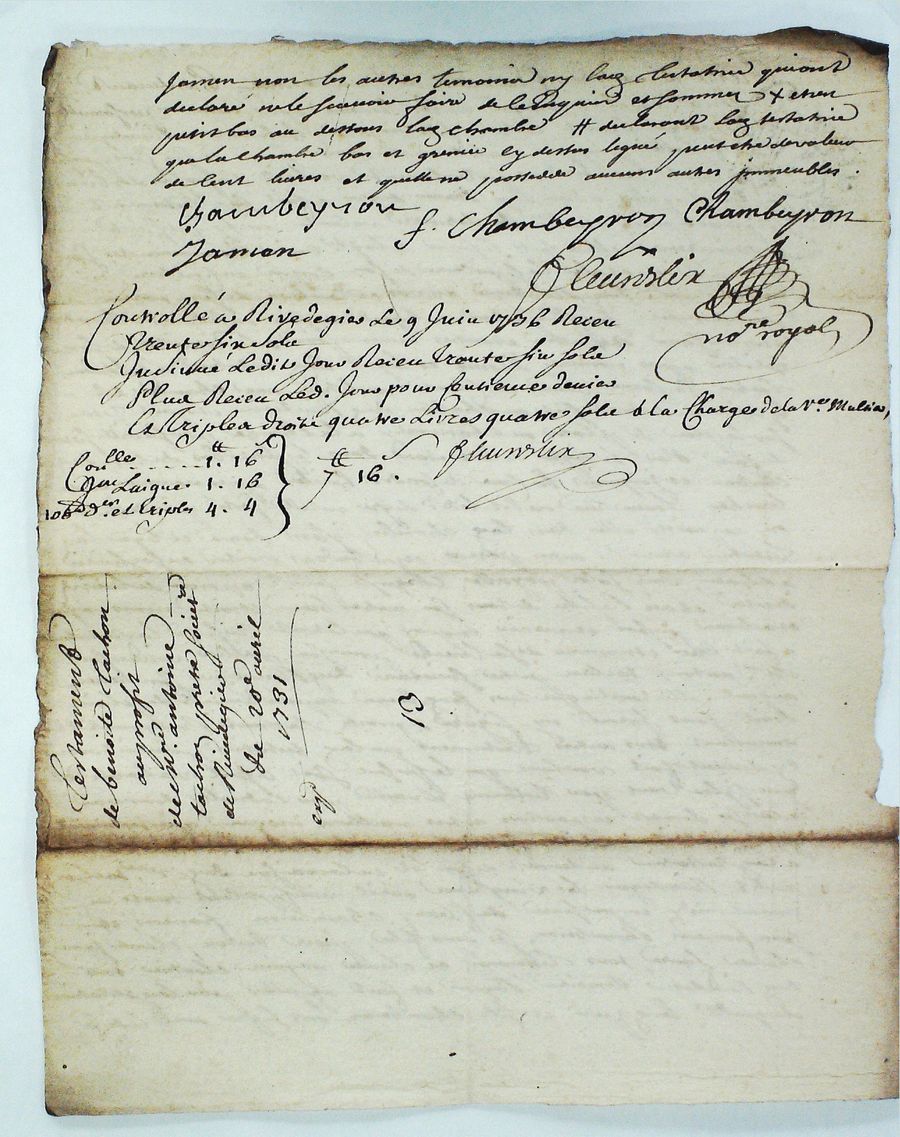 Jamen non les autres temoins ny lad testatrice qui ont
declaré ne le scavoir faire de ce enquis et sommes X et un
petit bas au dessous lad chambre # declarant lad testatrice
que la chambre bas et grenier cy dessus legué peut etre de valeur
de cent livres et quelle ne possedde aucuns autres immeubles.
Chambeyron f. Chambeyron Chambeyron
Jamen
nore royal
Controllé a Rivedegier Le 9 Juin 1736 Receu
Trente six sols
Insinué Ledit Jour Receu trente six sols
Plus Receu Led. Jour pour Centieme denier
Et Triple droit quatre Livres quatre sols à la Charge de la
Conlle ..... 1 # 16 s
1. 16
100e der. et triple 4. 4
7 # 16 s.
Testament
de benoite tachon
au profit
de Mre antoine
prêtre
de
du 20e avril
1731
expd
13